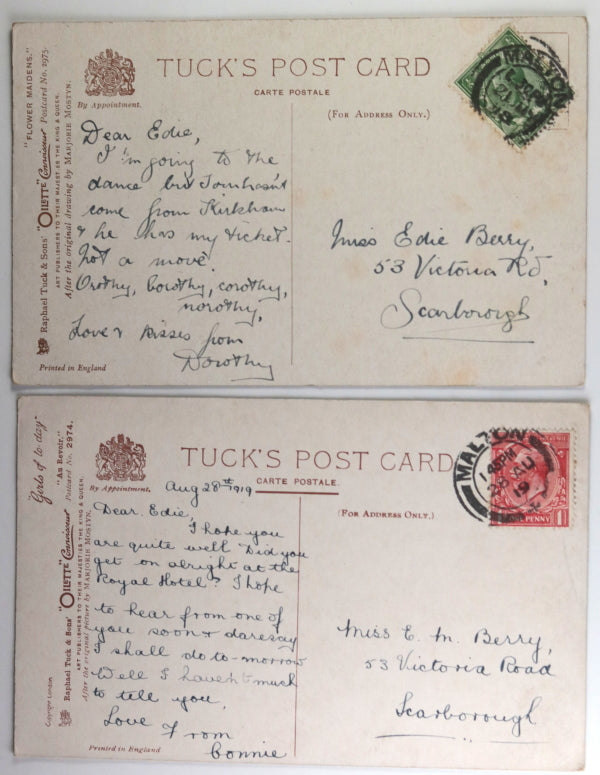 "FLOWER MAIDENS."
Raphael Tuck & Sons' "OILETTE" Connoisseur Postcard No. 2975.
ART PUBLISHERS TO THEIR MAJESTIES THE KING & QUEEN.
After the original drawing by MARJORIE MOSTYN.
By Appointment.
TUCK'S POST CARD
CARTE POSTALE
(FOR ADDRESS ONLY.)
MALTON
Dear Edie,
I'm going to the
dance but Tom hasn't
come from Kirkham
& he has my ticket.
Not a move.
Orothy, borothy, corothy,
norothy,
Love & kisses from
Dorothy
Miss Edie Berry,
53 Victoria Rd,
Scarborough
Printed in England
"Girls of to day"
"Au Revoir."
Raphael Tuck & Sons' "OILETTE" Connoisseur Postcard No. 2974.
ART PUBLISHERS TO THEIR MAJESTIES THE KING & QUEEN.
After the original picture by MARJORIE MOSTYN.
Copyright London
By Appointment.
TUCK'S POST CARD
CARTE POSTALE.
(FOR ADDRESS ONLY.)
MALTON
1 45PM
28 AU
19
PENNY 1
Aug 28th 1919
Dear Edie,
I hope you
are quite well Did you
get on alright at the
Royal Hotel? I hope
to hear from one of
you soon & daresay
I shall do to-morrow
Well I haven't much
to tell you,
Love
From
Connie
Miss E. M. Berry,
53 Victoria Road
Scarborough
Printed in England